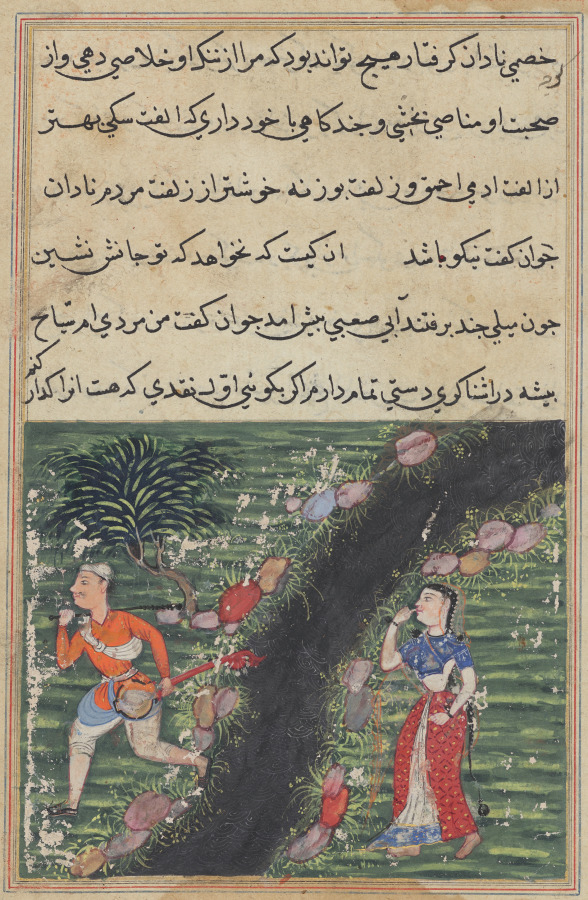 خصي نادان كرفتار هيج تواند بود كه مرا از ننك او خلاصي دهي و از
صحبت او مناصي بخشي و جند كاهي با خود داري كه الفت سكي بهتر
از الفت ادمي احمق و زلفت بوزنه خوشتر از زلفت مردم نادان
جوان كفت نيكو باشد ان كيست كه نخواهد كه تو جانش نشين
جون ميلي جند برفتند آبي صعبي بيش امد جوان كفت من مردي ام سياح
بيشه در اشناكري دستي تمام دارم اكر بكوئي اول نقدي كه هست انرا كذار كنم